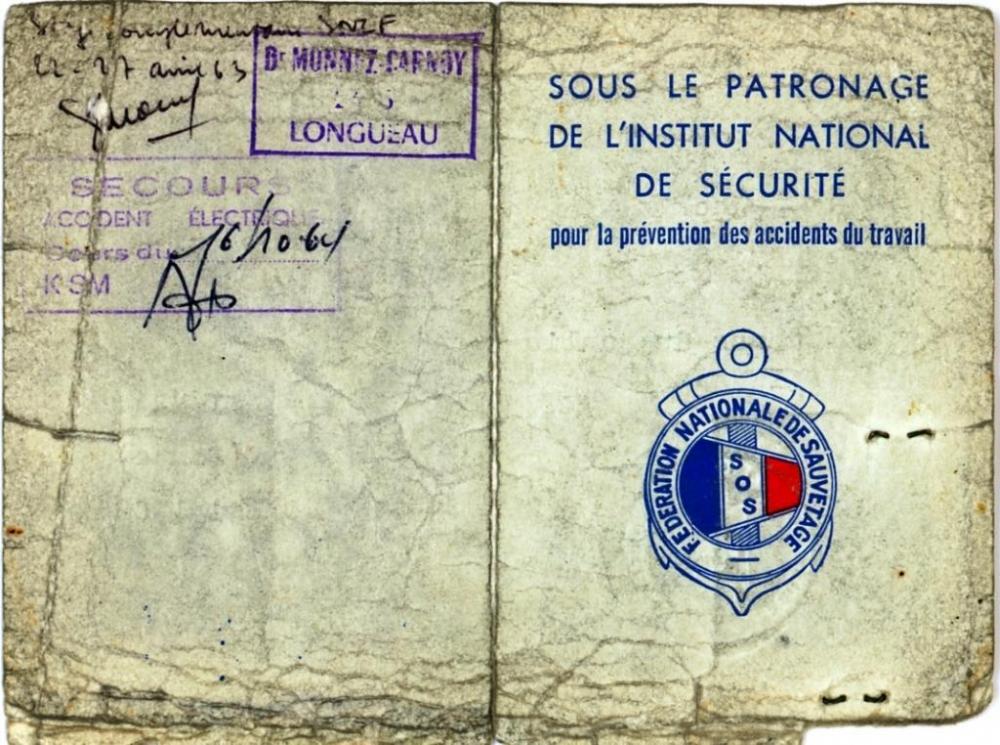 22-27 avril 63
Dr MUNNEZ-CARNOY
LONGUEAU
SECOURS
ACCIDENT ÉLECTRIQUE
Cours du 16/10-64
SOUS LE PATRONAGE
DE L'INSTITUT NATIONAL
DE SÉCURITÉ
pour la prévention des accidents du travail
FÉDÉRATION NATIONALE DE SAUVETAGE
S
O
S